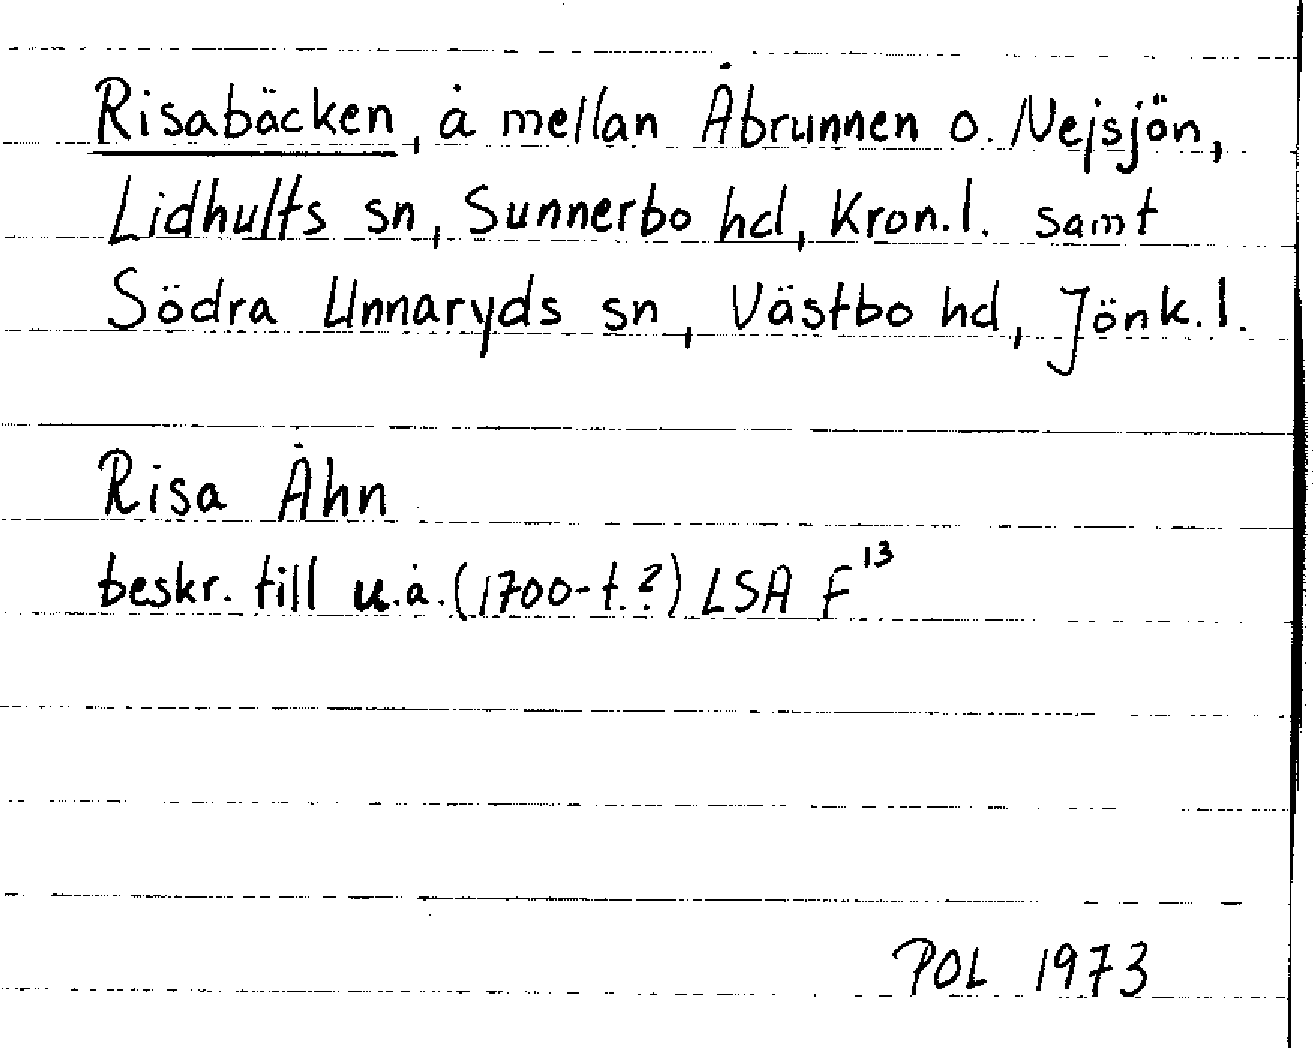 Risabäcken, å mellan Åbrunnen o. Nejsjön,
Lidhults sn, Sunnerbo hd, Kron.l. samt
Södra Unnaryds sn, Västbo hd, Jönk.l.
Risa Åhn
beskr. till u.å. (1700-t.?) LSA F¹³
POL 1973